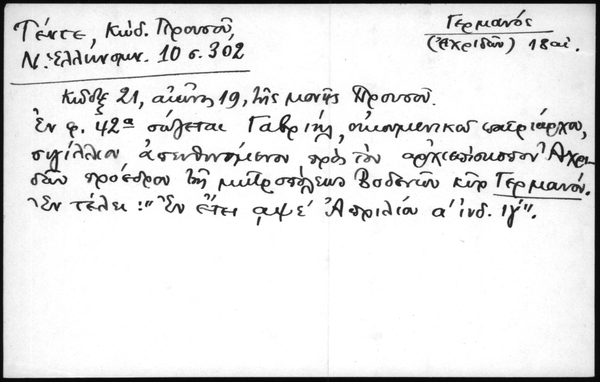 Τέντε, Κώδ. Προυσοῦ,
Ν. Ἑλληνομν. 10 σ. 302
Γερμανός
(Ἀχριδῶν) 18 αἰ.
Κῶδιξ 21, αἰῶνος 19, τῆς μονῆς Προυσοῦ.
Ἐν φ. 42α σῴζεται Γαβριήλ, οἰκουμενικοῦ πατριάρχου,
σιγίλλιον ἀπευθυνόμενον πρὸς τὸν ἀρχιεπίσκοπον Ἀχρι-
δῶν πρόεδρον τῆς μητροπόλεως Βοδενῶν κῦρ Γερμανόν.
Ἐν τέλει: "Ἐν ἔτει ͵αψε΄ Ἀπριλίου α΄ ἰνδ. ιγ΄".